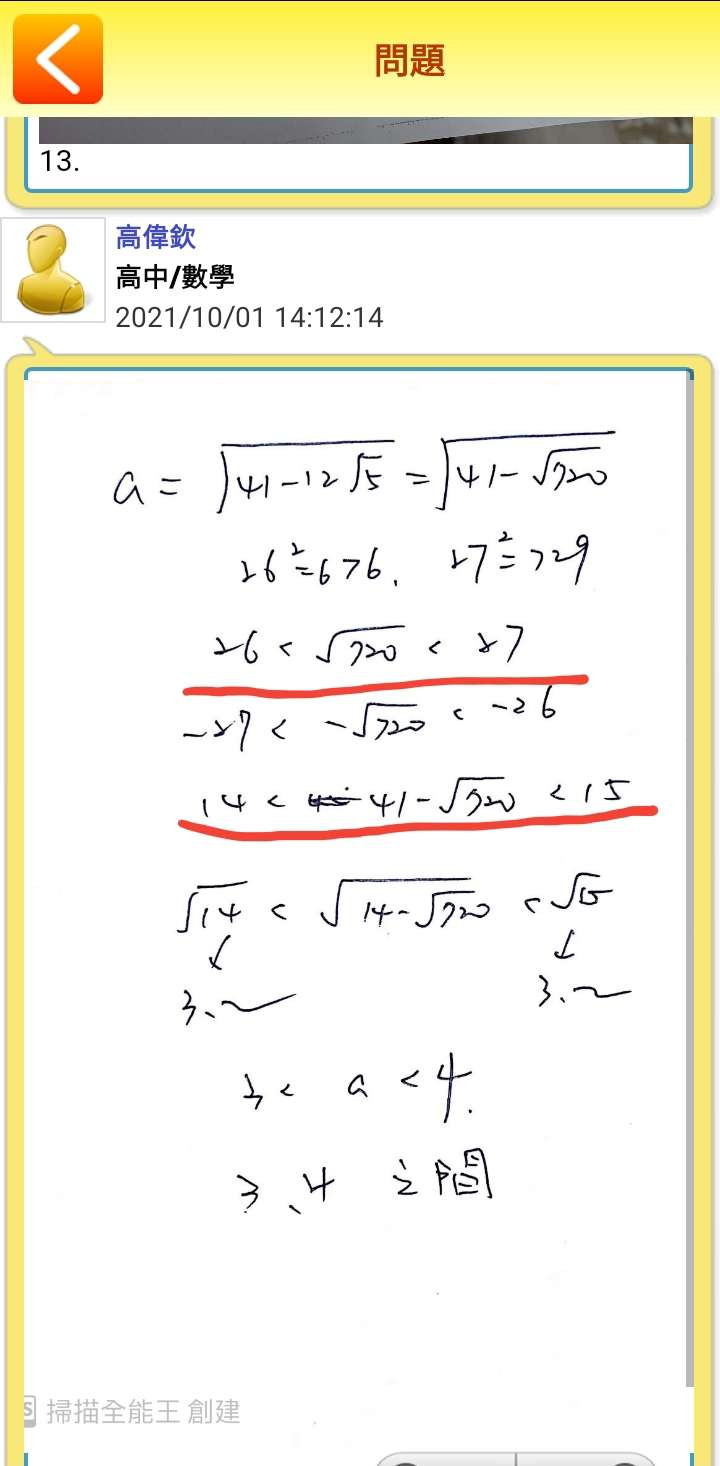 問題
13.
高偉欽
高中/數學
2021/10/01 14:12:14
a = √(41-12√5) = √(41-√720)
26²=676. 27²=729
26 < √720 < 27
-27 < -√720 < -26
14 < 41-√720 < 15
√14 < √(14-√720) < √15
3.~ 3.~
3 < a < 4.
3、4 之間
掃描全能王 創建